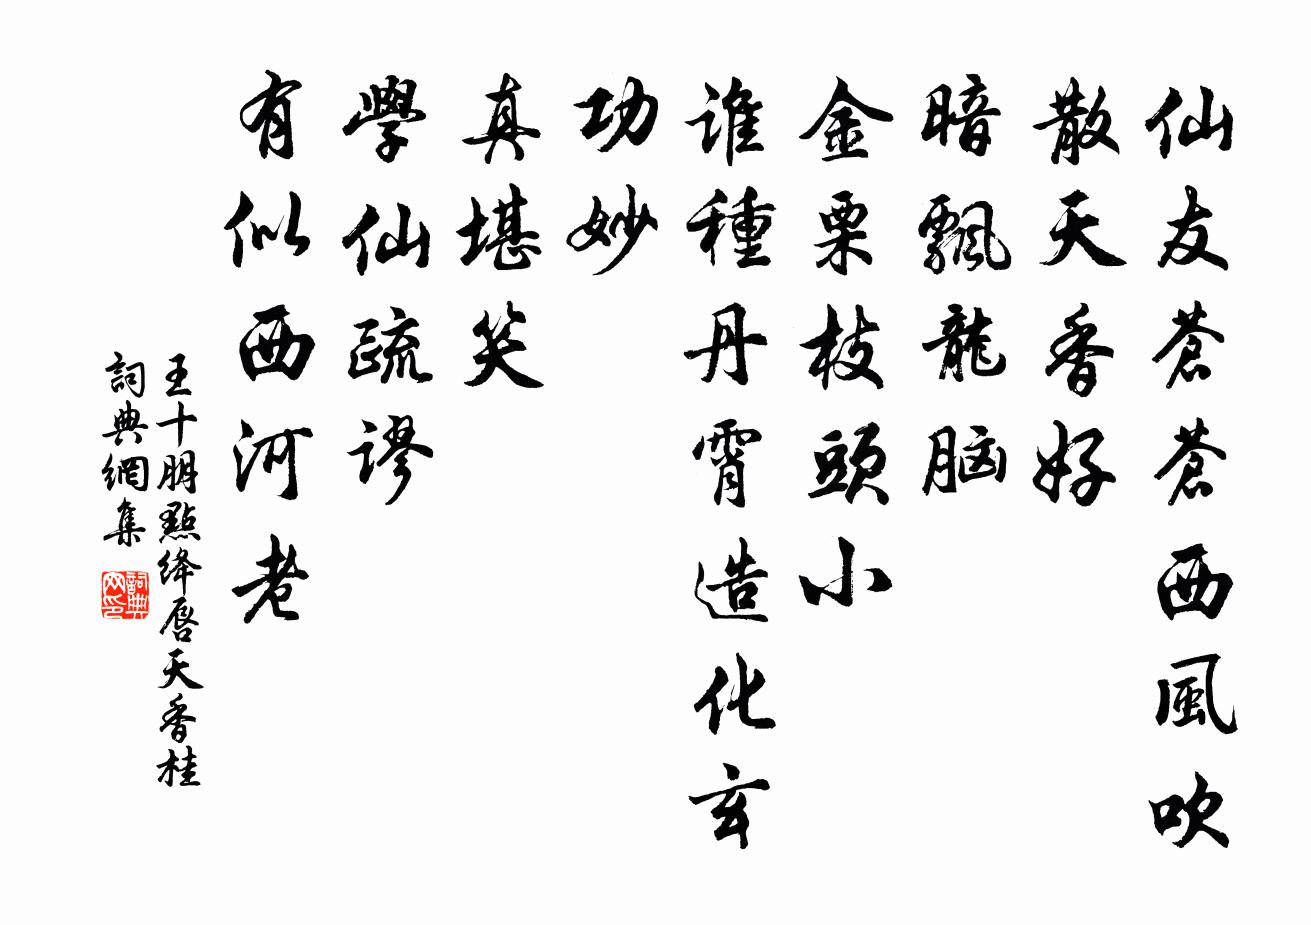 仙友蒼蒼西風吹
散天香好
暗飄龍脑
金栗枝頭小
誰種丹霄造化玄
功妙
真堪笑
學仙疏謬
有似西河老
王十朋點绛唇天香桂
詞典網集
詞典网印